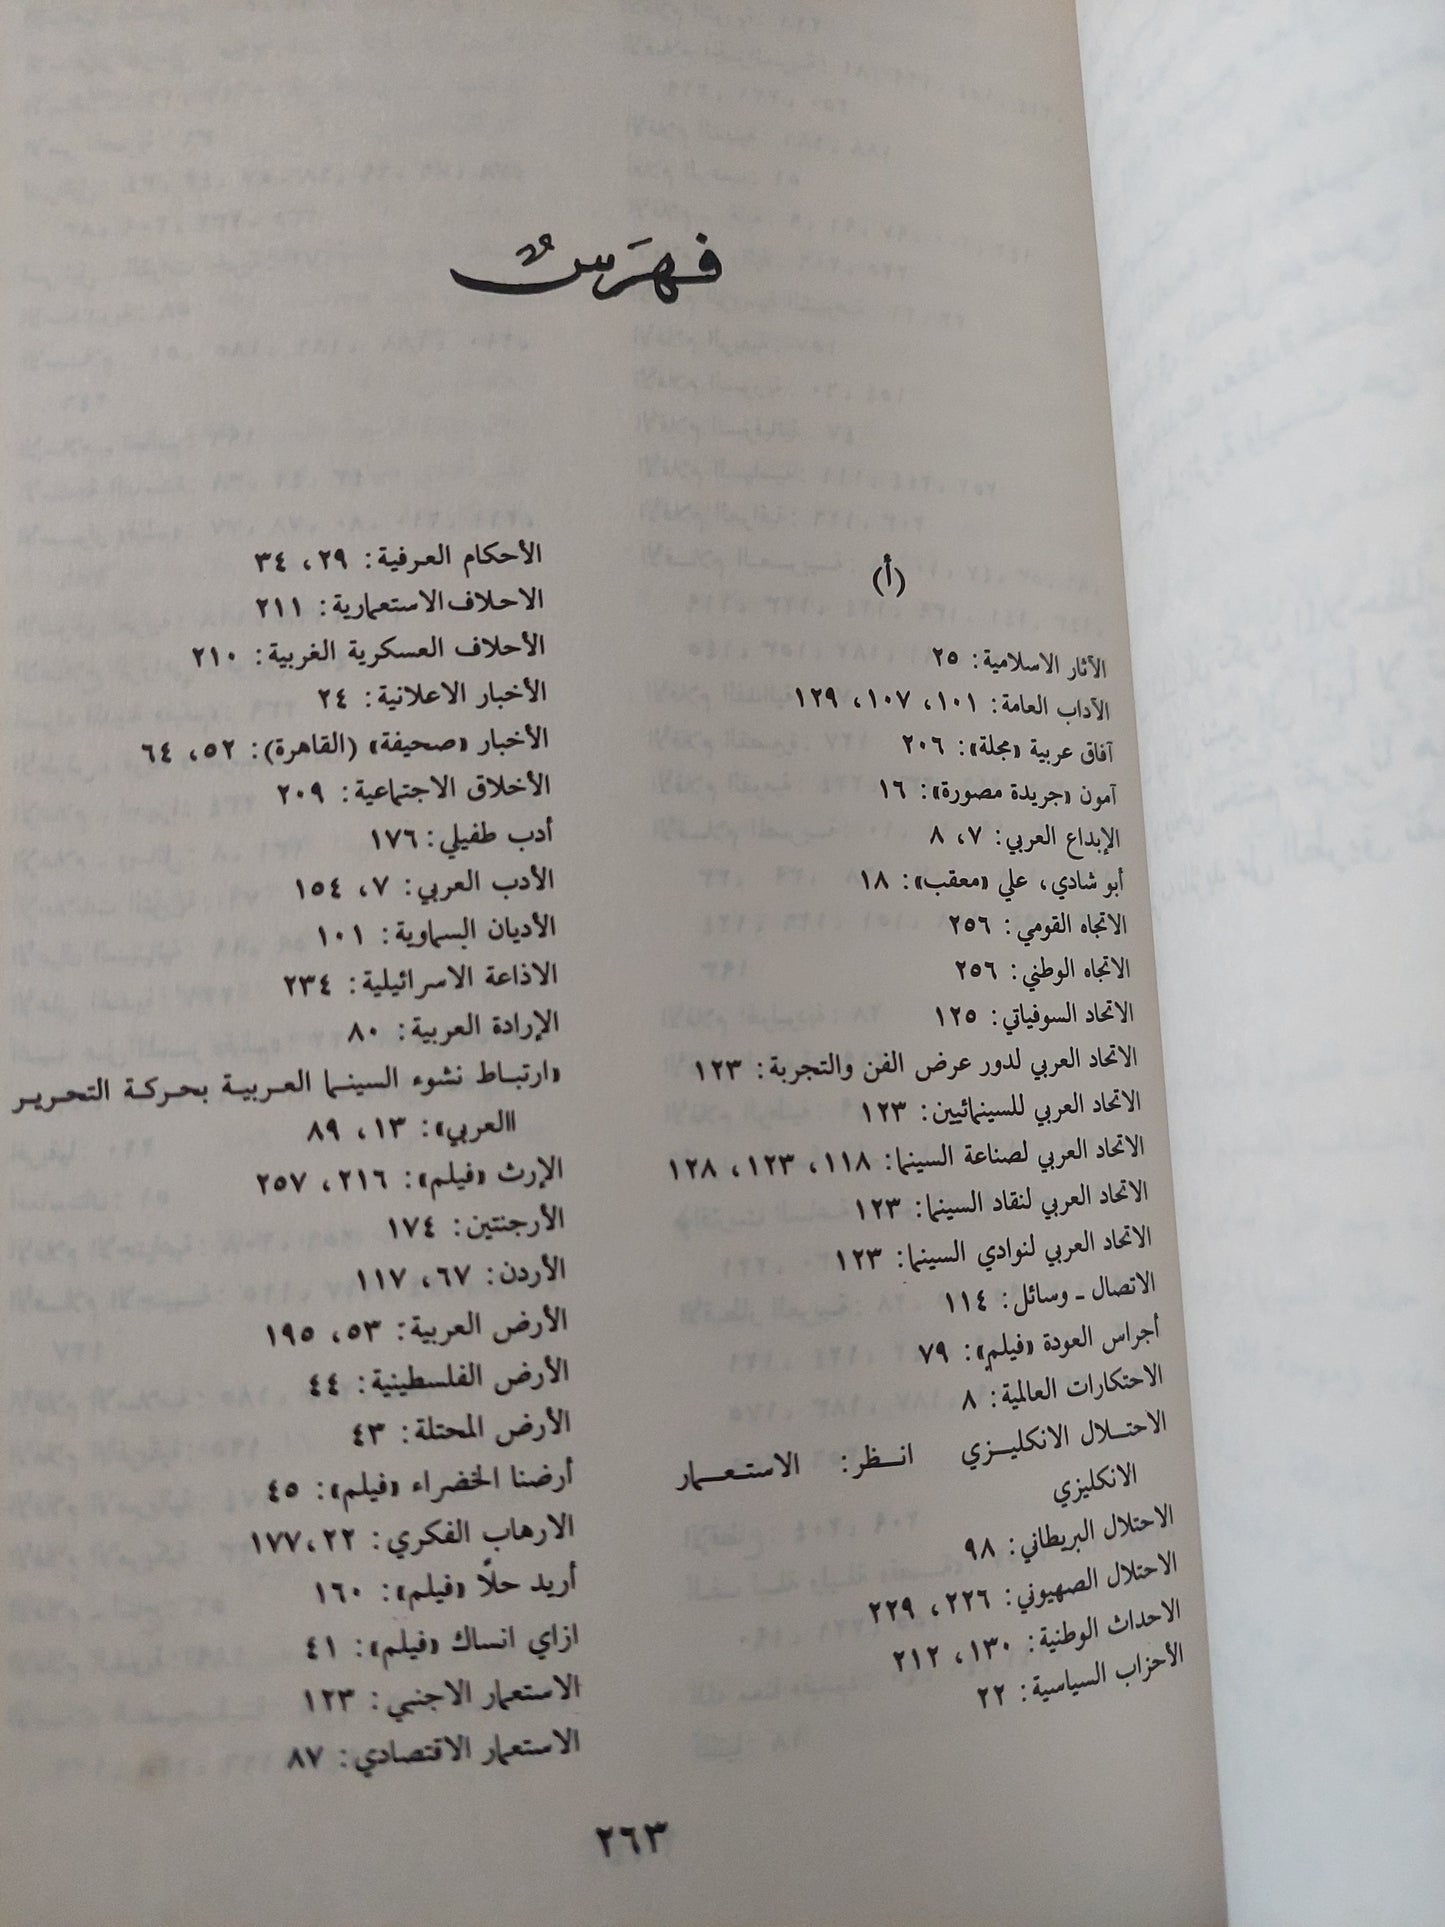 فهرس
(أ)
الآثار الاسلامية: ٢٥
الآداب العامة: ١٠١، ١٠٧، ١٢٩
آفاق عربية «مجلة»: ٢٠٦
آمون «جريدة مصورة»: ١٦
الإبداع العربي: ٧، ٨
أبو شادي، علي «معقب»: ١٨
الاتجاه القومي: ٢٥٦
الاتجاه الوطني: ٢٥٦
الاتحاد السوفياتي: ١٢٥
الاتحاد العربي لدور عرض الفن والتجربة: ١٢٣
الاتحاد العربي للسينمائيين: ١٢٣
الاتحاد العربي لصناعة السينما: ١١٨، ١٢٣، ١٢٨
الاتحاد العربي لنقاد السينما: ١٢٣
الاتحاد العربي لنوادي السينما: ١٢٣
الاتصال ـ وسائل: ١١٤
أجراس العودة «فيلم»: ٧٩
الاحتكارات العالمية: ٨
الاحتلال الانكليزي انظر: الاستعمار
الانكليزي
الاحتلال البريطاني: ٩٨
الاحتلال الصهيوني: ٢٢٦، ٢٢٩
الاحداث الوطنية: ١٣٠، ٢١٢
الأحزاب السياسية: ٢٢
الأحكام العرفية: ٢٩، ٣٤
الاحلاف الاستعمارية: ٢١١
الأحلاف العسكرية الغربية: ٢١٠
الأخبار الاعلانية: ٢٤
الأخبار «صحيفة» (القاهرة): ٥٢، ٦٤
الأخلاق الاجتماعية: ٢٠٩
أدب طفيلي: ١٧٦
الأدب العربي: ٧، ١٥٤
الأديان السماوية: ١٠١
الاذاعة الاسرائيلية: ٢٣٤
الإرادة العربية: ٨٠
«ارتباط نشوء السينما العربية بحركة التحرير
العربي»: ١٣، ٨٩
الإرث «فيلم»: ٢١٦، ٢٥٧
الأرجنتين: ١٧٤
الأردن: ٦٧، ١١٧
الأرض العربية: ٥٣، ١٩٥
الأرض الفلسطينية: ٤٤
الأرض المحتلة: ٤٣
أرضنا الخضراء «فيلم»: ٤٥
الارهاب الفكري: ٢٢، ١٧٧
أريد حلاً «فيلم»: ١٦٠
ازاي انساك «فيلم»: ٤١
الاستعمار الاجنبي: ١٢٣
الاستعمار الاقتصادي: ٨٧
٢٦٣